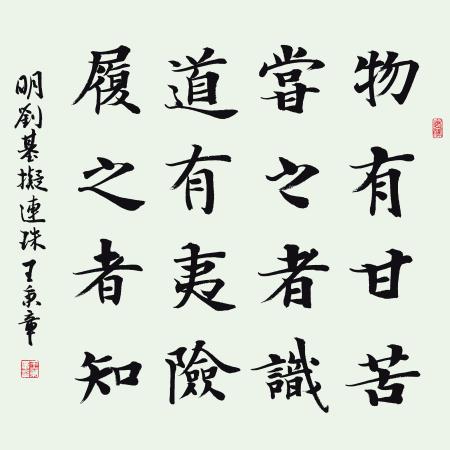 物有甘苦
嘗之者識
道有夷險
履之者知
明劉基擬連珠 王秉章